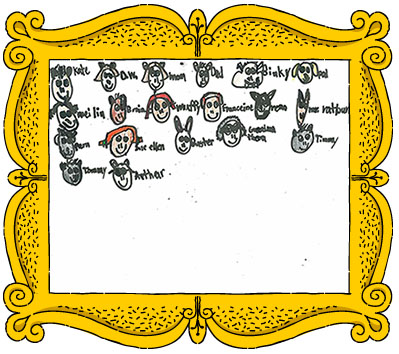 Kate D.W. mom Dad Binky pal
mei lin Brain Muffy Francine Prunella mr. ratburn
Fern Sue ellen Buster Grandma thora Timmy
Tommy Arthur